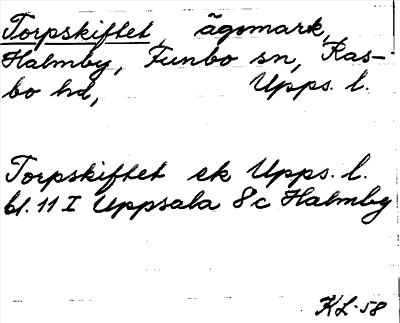 Torpskiftet, ägomark,
Halmby, Funbo sn, Ras-
bo hd, Upps. l.
Torpskiftet ek Upps. l.
bl. 11 I Uppsala 8c Halmby
KL-58